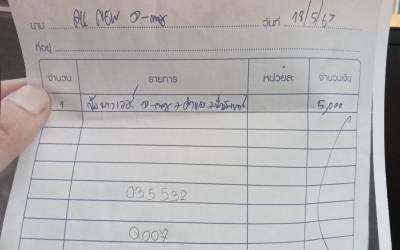 นาม ALL NEW D-max วันที่ 18/5/67
ที่อยู่
จำนวน รายการ หน่วยละ จำนวนเงิน
1 D-max + + 5,000
035532
Q007